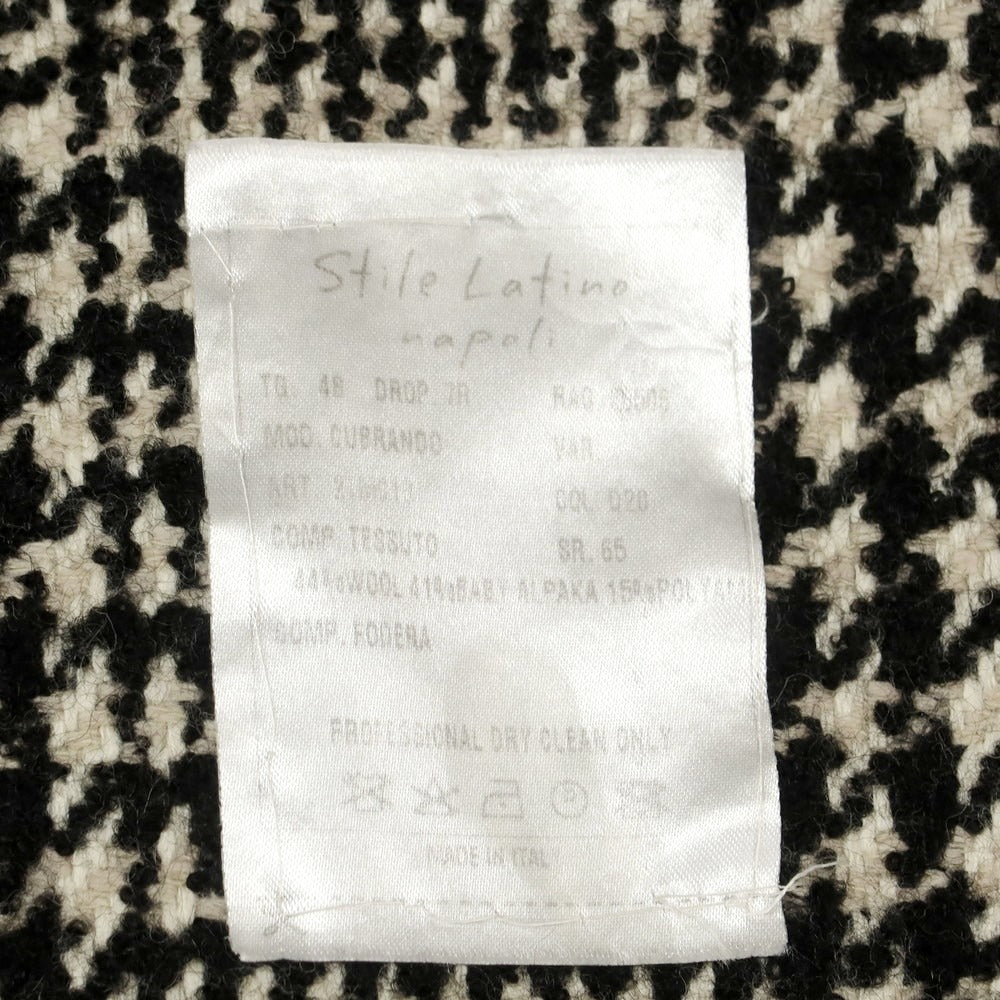 Stile Latino
napoli
TG. 48 DROP. 7R
MOD. VAR
ART. COL. 020
COMP. TESSUTO SR. 65
44%WOOL 41%BABY ALPAKA 15%
COMP. FODERA
PROFESSIONAL DRY CLEAN ONLY
MADE IN ITALY